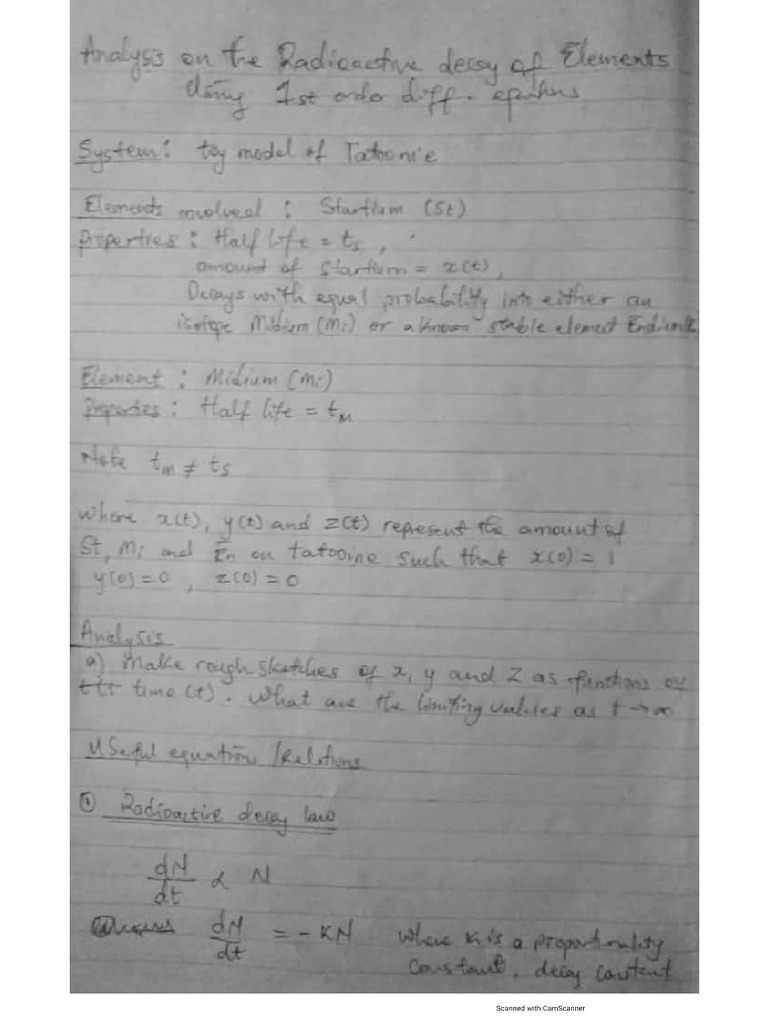 Analysis on the Radioactive decay of Elements
Using 1st order diff. equations
System: toy model of Tatoonie
Elements involved : Startium (St)
Properties : Half life = ts ,
amount of Startium = x(t),
Decays with equal probability into either an
isotope Midium (Mi) or a known stable element Endium
Element : Midium (Mi)
Properties : Half life = tm
Note tm ≠ ts
where x(t), y(t) and z(t) represent the amount of
St, Mi and En on tatooine such that x(0) = 1
y(0) = 0 , z(0) = 0
Analysis
a) Make rough sketches of x, y and z as functions of
time (t) . What are the limiting values as t → ∞
Useful equation /Relations
① Radioactive decay law
dN/dt ∝ N
dN/dt = - KN where K is a proportionality
constant, decay constant
Scanned with CamScanner